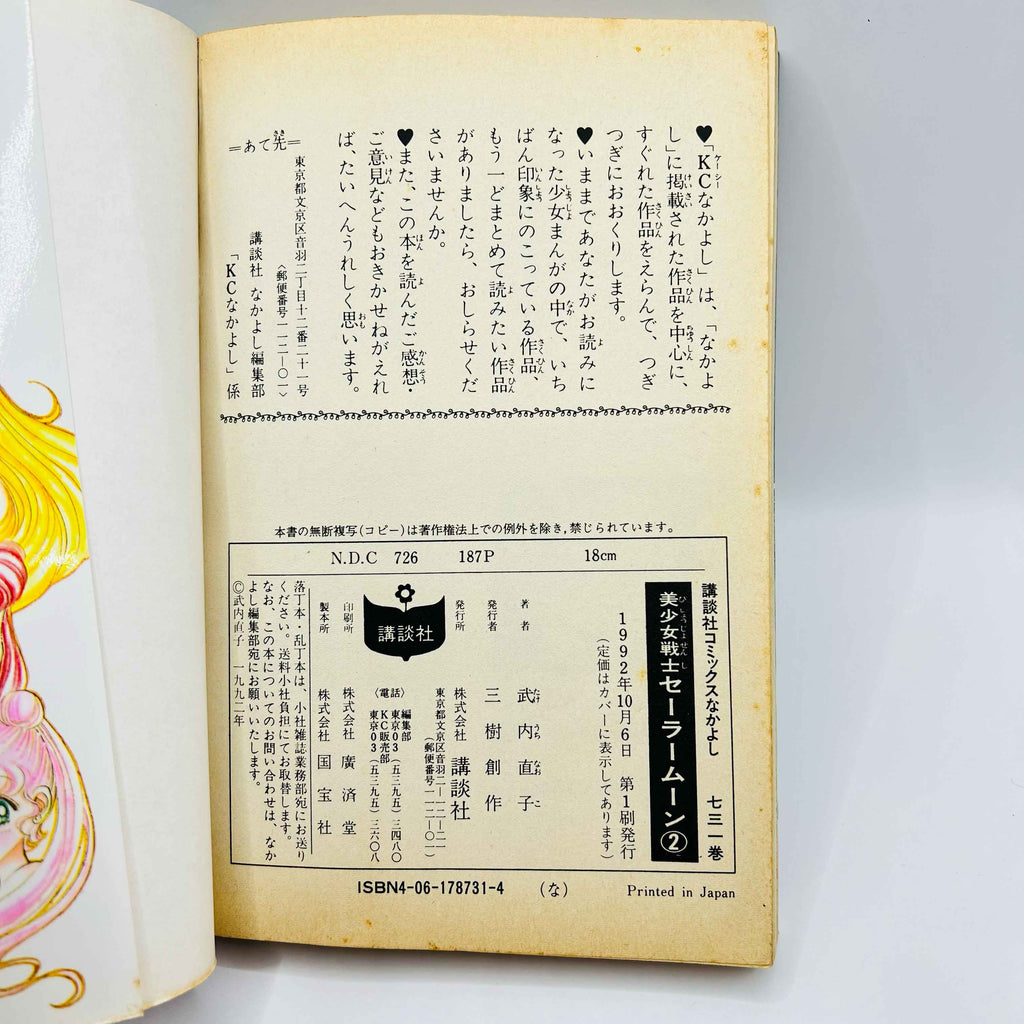 ♥「KCなかよし」は、「なかよ
し」に掲載された作品を中心に、
すぐれた作品をえらんで、つぎ
つぎにおおくりします。
♥いままであなたがお読みに
なった少女まんがの中で、いち
ばん印象にのこっている作品、
もう一どまとめて読みたい作品
がありましたら、おしらせくだ
さいませんか。
♥また、この本を読んだご感想・
ご意見などもおきかせねがえれ
ば、たいへんうれしく思います。
=あて先=
東京都文京区音羽二丁目十二番二十一号
〈郵便番号一一二―〇一〉
講談社 なかよし編集部
「KCなかよし」係
本書の無断複写(コピー)は著作権法上での例外を除き,禁じられています。
N.D.C 726 187P 18cm
講談社コミックスなかよし 七三一巻
美少女戦士セーラームーン②
1992年10月6日 第1刷発行
(定価はカバーに表示してあります)
著者 武内直子
発行者 三樹創作
発行所 株式会社 講談社
東京都文京区音羽二―一二―二一
(郵便番号一一二―〇一)
講談社
〈電話〉編集部 東京03(五三九五)三四八〇
KC販売部 東京03(五三九五)三六〇八
印刷所 株式会社 廣済堂
製本所 株式会社 国宝社
落丁本・乱丁本は、小社雑誌業務部宛にお送り
ください。送料小社負担にてお取替します。
なお、この本についてのお問い合わせは、なか
よし編集部宛にお願いいたします。
©武内直子 一九九二年
ISBN4-06-178731-4 (な) Printed in Japan